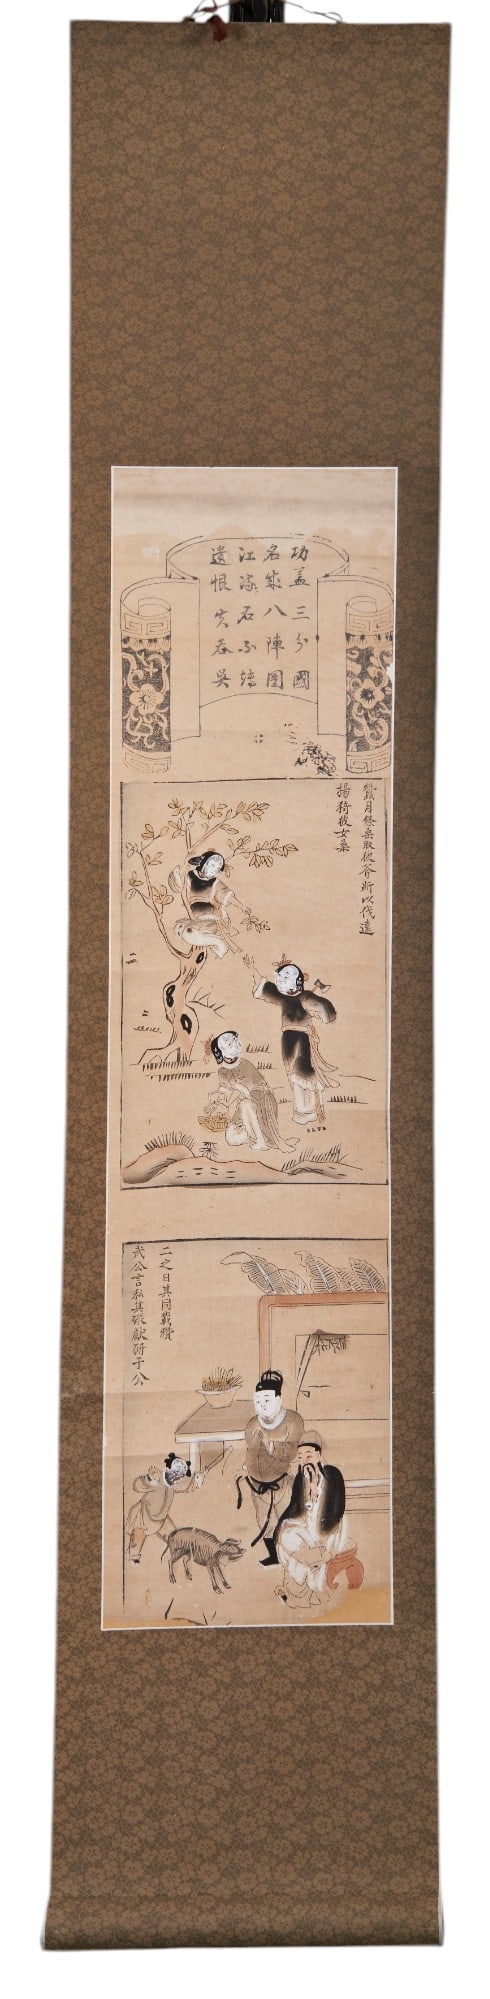 功盖三分國
名成八陣圖
江流石不轉
遺恨失吞吳
蠶月條桑取彼斧斨以伐遠
揚猗彼女桑
二之日其同載纘
武公言私其豵獻豜于公